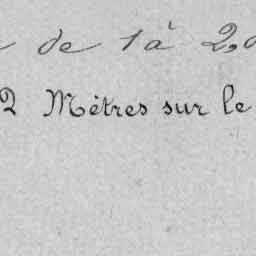 de 1 à 2,
2 Mètres sur le